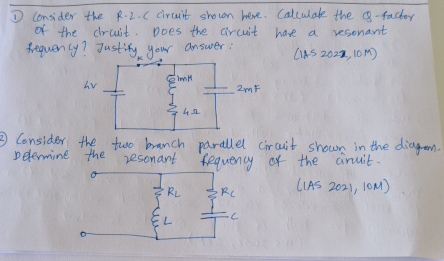 ① Consider the R-L-C circuit shown here. Calculate the Q-factor
of the circuit. Does the circuit have a resonant
frequency? Justify your answer:
(IAS 2022, 10M)
K
1mH
4V
2mF
4Ω
② Consider the two branch parallel circuit shown in the diagram.
Determine the resonant frequency of the circuit.
(IAS 2021, 10M)
RL
RC
L
C